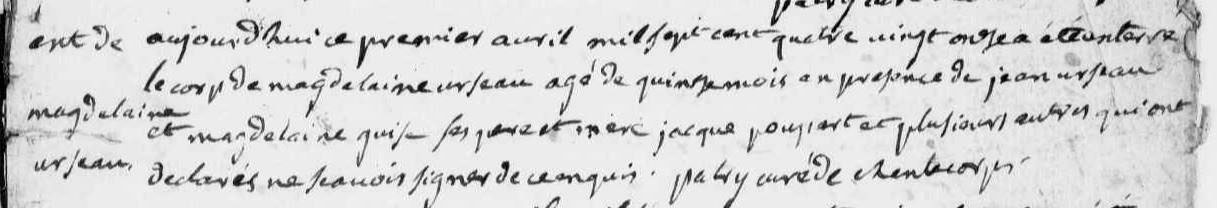 ent de aujourd'huice premier avril mil sept cent quatre vingt onse a été enterre
le corp de magdelaine urseau agé de quinse mois en presence de jean urseau
magdelaine
et magdelaine guise ses pere et mere jacque poupart et plusieurs autres qui ont
urseau. declarés ne scavoir signer de ce enquis. patry curé de chantecorps